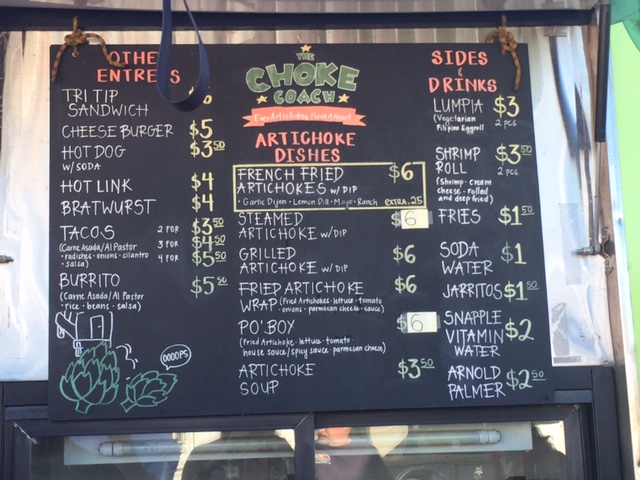 OTHE
ENTREES
TRI TIP
SANDWICH
CHEESE BURGER $5
HOT DOG $3.50
W/SODA
HOT LINK $4
BRATWURST $4
TACOS 2 FOR $3.50
(Carne Asada/Al Pastor 3 FOR $4.50
• radishes • onions • cilantro 4 FOR $5.50
• salsa)
BURRITO $5.50
(Carne Asada/Al Pastor
• rice • beans • salsa)
OOOOPS
THE
CHOKE
COACH
Even Artichokes Have A Heart!
ARTICHOKE
DISHES
FRENCH FRIED $6
ARTICHOKES W/ DIP
• Garlic Dijon • Lemon Dill • Mayo • Ranch EXTRA .25
STEAMED $6
ARTICHOKE W/DIP
GRILLED $6
ARTICHOKE W/ DIP
FRIED ARTICHOKE $6
WRAP (Fried Artichokes • lettuce • tomato
• onions • parmesan cheese • sauce)
PO' BOY $6
(Fried Artichoke • lettuce • tomato
house sauce/spicy sauce • parmesan cheese)
ARTICHOKE $3.50
SOUP
SIDES
&
DRINKS
LUMPIA $3
(Vegetarian 2 PCS
Filipino Eggroll)
SHRIMP $3.50
ROLL 2 PCS
(Shrimp • cream
cheese • rolled
and deep fried)
FRIES $1.50
SODA $1
WATER
JARRITOS $1.50
SNAPPLE $2
VITAMIN
WATER
ARNOLD $2.50
PALMER